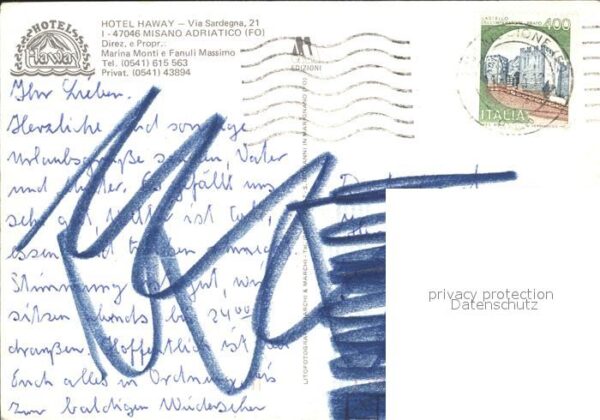 HOTEL
Haway
HOTEL HAWAY — Via Sardegna, 21
I - 47046 MISANO ADRIATICO (FO)
Direz. e Propr.:
Marina Monti e Fanuli Massimo
Tel. (0541) 615 563
Privat. (0541) 43894
EDIZIONI
400
ITALIA
Ihr Lieben.
Herzliche und sonnige
Urlaubsgrüße senden, Vater
und Mutter. Es gefällt uns
sehr gut, Wetter ist toll,
essen und trinken
Stimmung ist gut, wir
sitzen abends bis 24 00
draußen. Hoffentlich ist bei
Euch alles in Ordnung, bis
zum baldigen Wiedersehen
privacy protection
Datenschutz